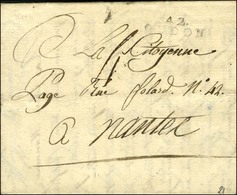 42
La Citoyenne
Page Rue folard. N.º 42.
a Nantes